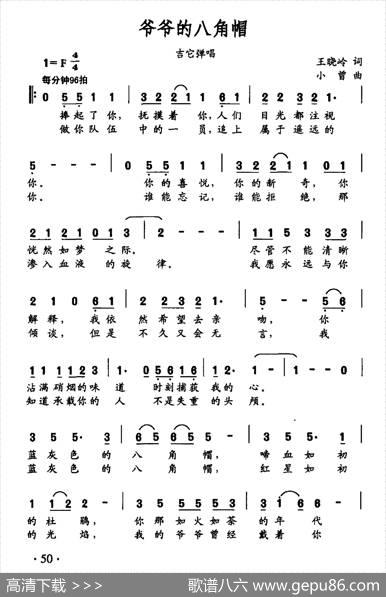 爷爷的八角帽
吉它弹唱
1=F 4/4
每分钟96拍
王晓岭 词
小曾 曲
0 5 5 1 1 | 3 2 2 1 1 0 1 | 2 2 3 2 1 2 1·
捧起了你，抚摸着你，人们目光都注视
做你队伍中的一员，追上属于遥远的
5 - - - | 0 1 5 5 1 1 | 3 2 2 1 1 0 1
你。你的喜悦，你的新奇，你
你。谁能忘记，谁能拒绝，那
恍然如梦之际。尽管不能清晰
渗入血液的旋律。我愿永远与你
解释，我依然希望去亲吻，你
倾谈，但是不久又会无言，我
沾满硝烟的味道时刻捕获我的心。
知道承载你的人不是失重的头颅。
3 5 5 3· | 6 5 6 5 6 5 | 5 - - - | 3 5 5 3·
蓝灰色的八角帽，啼血如初
蓝灰色的八角帽，红星如初
的杜鹃，你那如火如荼的年代
的光焰，我的爷爷曾经戴着你
·50·
高清下载 >>>
歌谱八六 www.gepu86.com